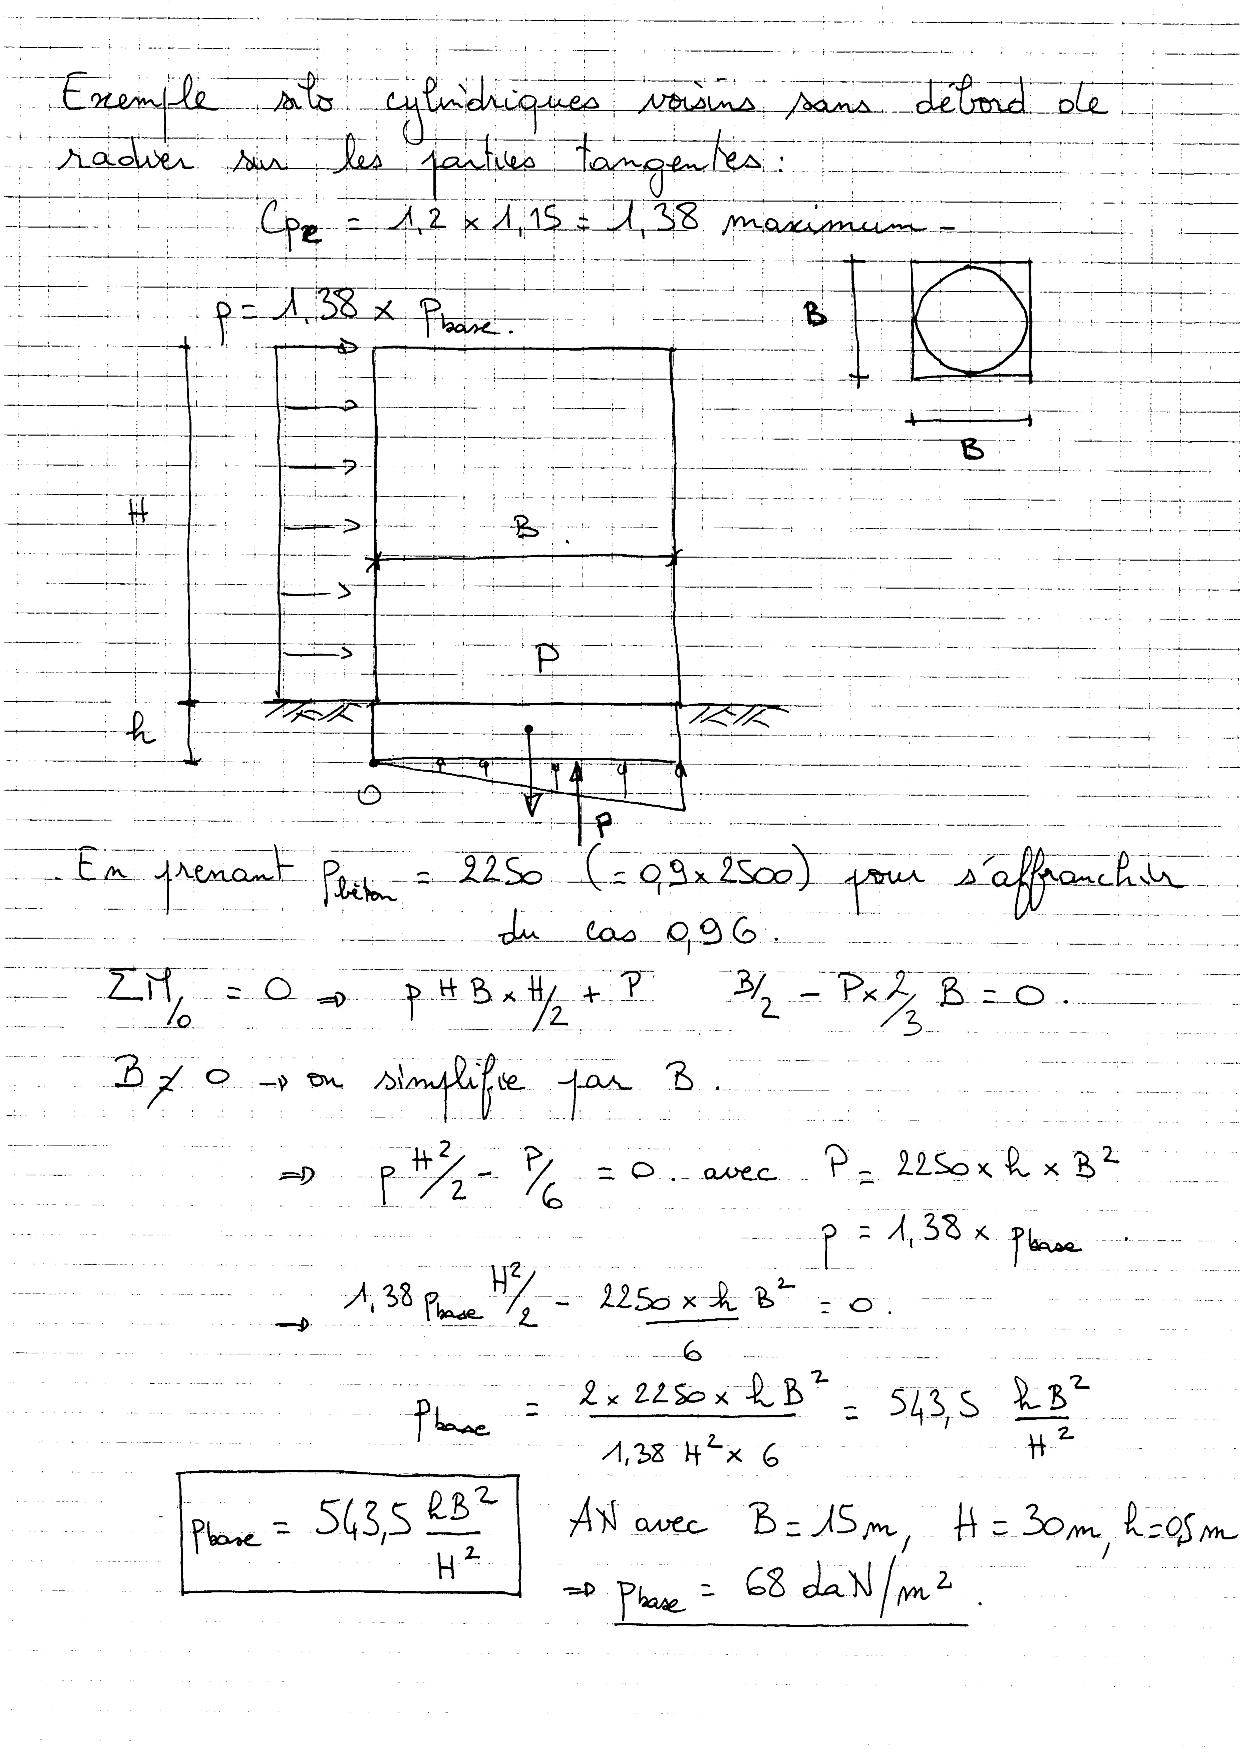 Exemple silo cylindriques voisins sans débord de
radier sur les parties tangentes :
Cpe = 1,2 x 1,15 = 1,38 maximum -
p = 1,38 x Pbase.
B
B
H
B
P
h
O
P
. En prenant ρbéton = 2250 (= 0,9 x 2500) pour s'affranchir
du cas 0,96.
ΣM/o = 0 ⇒ p H B x H/2 + P B/2 - P x 2/3 B = 0.
B ≠ 0 → on simplifie par B.
⇒ p H²/2 - P/6 = 0. avec P = 2250 x h x B²
p = 1,38 x Pbase.
→ 1,38 Pbase H²/2 - 2250 x h B²/6 = 0.
Pbase = 2 x 2250 x h B² / 1,38 H² x 6 = 543,5 h B²/H²
Pbase = 543,5 hB²/H² AN avec B = 15m, H = 30m, h = 0,5m
⇒ Pbase = 68 daN/m².